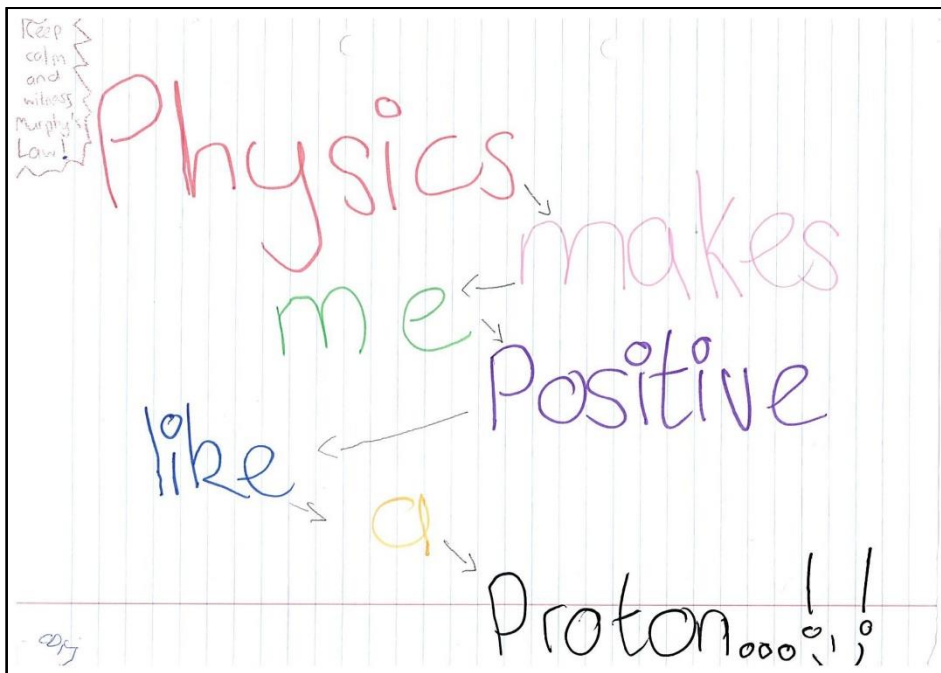 Keep
calm
and
witness
Murphy's
Law!
Physics
makes
me
Positive
like
a
Proton...!!